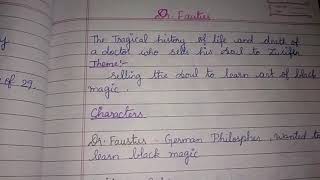 Dr. Faustus
The Tragical history of life and death of
a doctor who sells his soul to Lucifer
Theme:-
selling the soul to learn art of black
magic.
Characters
Dr. Faustus - German Philospher, Wanted to
learn black magic
of 29.